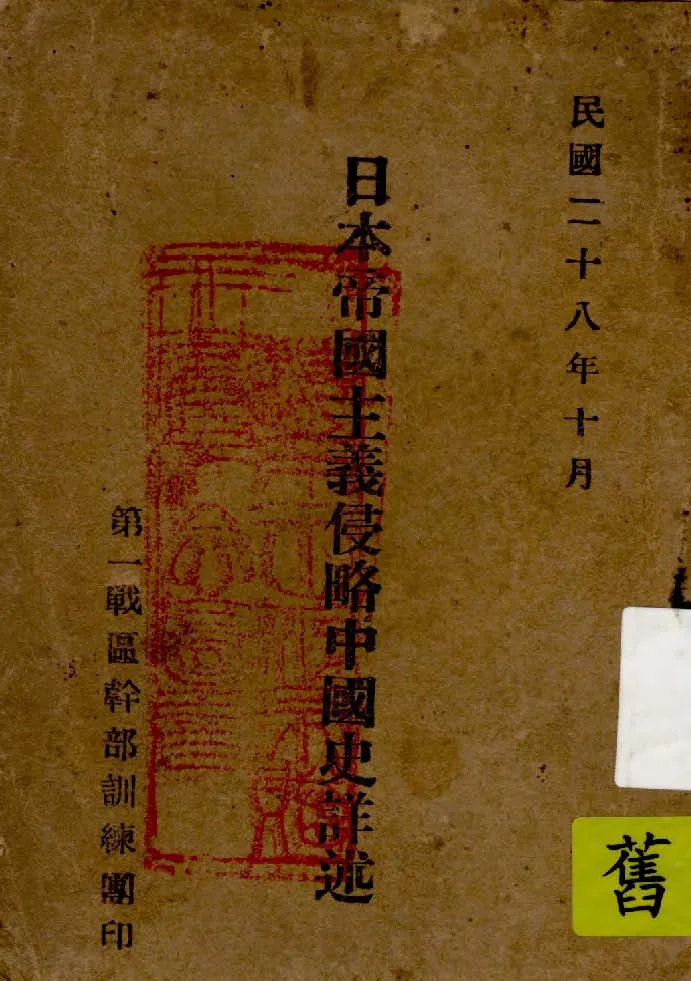 民國二十八年十月
日本帝國主義侵略中國史詳述
第一戰區幹部訓練團印
舊